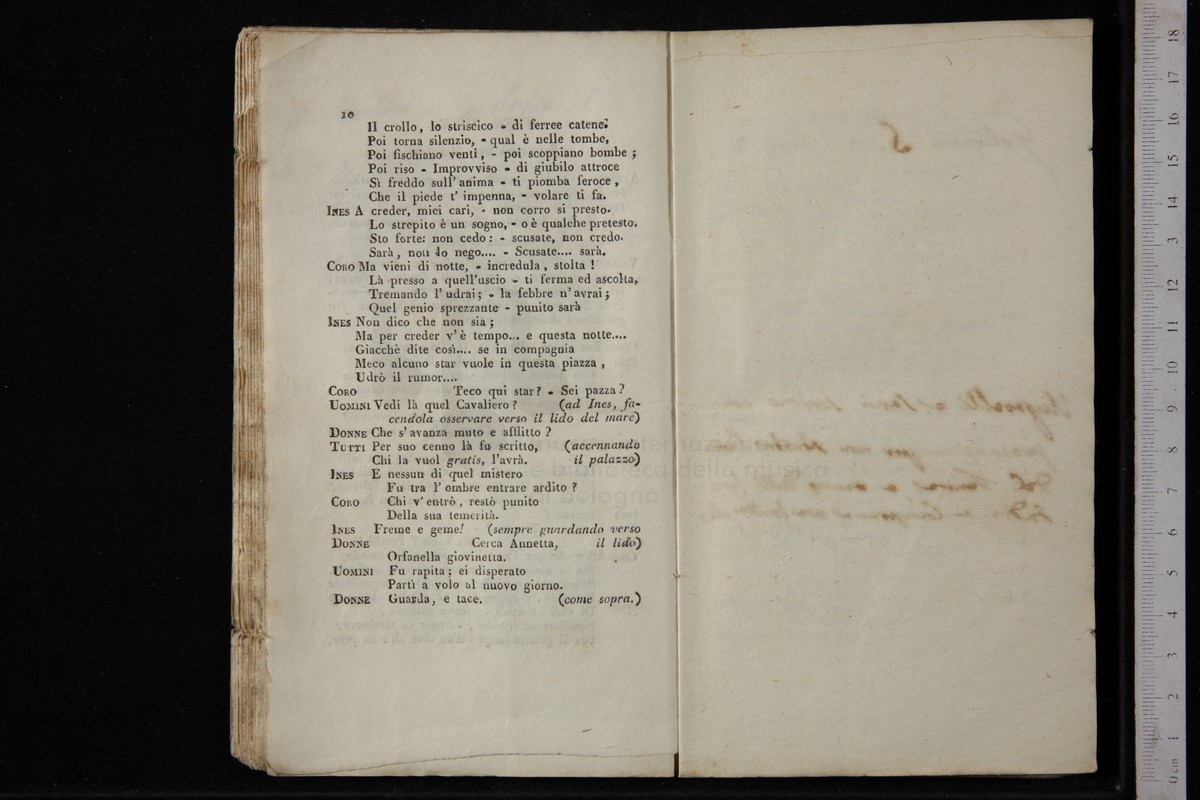 10
Il crollo, lo striscico - di ferree catene:
Poi torna silenzio, - qual è nelle tombe,
Poi fischiano venti, - poi scoppiano bombe ;
Poi riso - Improvviso - di giubilo attroce
Sì freddo sull' anima - ti piomba feroce,
Che il piede t' impenna, - volare ti fa.
INES A creder, miei cari, - non corro sì presto.
Lo strepito è un sogno, - o è qualche pretesto.
Sto forte: non cedo : - scusate, non credo.
Sarà, non lo nego.... - Scusate.... sarà.
CORO Ma vieni di notte, - incredula, stolta !
Là presso a quell'uscio - ti ferma ed ascolta,
Tremando l' udrai ; - la febbre n' avrai ;
Quel genio sprezzante - punito sarà
INES Non dico che non sia ;
Ma per creder v' è tempo... e questa notte....
Giacchè dite così.... se in compagnia
Meco alcuno star vuole in questa piazza ,
Udrò il rumor....
CORO Teco qui star ? - Sei pazza ?
UOMINI Vedi là quel Cavaliero ? (ad Ines, fa-
cendola osservare verso il lido del mare)
DONNE Che s' avanza muto e afflitto ?
TUTTI Per suo cenno là fu scritto, (accennando
Chi la vuol gratis, l'avrà. il palazzo)
INES E nessun di quel mistero
Fu tra l' ombre entrare ardito ?
CORO Chi v' entrò, restò punito
Della sua temerità.
INES Freme e geme! (sempre guardando verso
DONNE Cerca Annetta, il lido)
Orfanella giovinetta.
UOMINI Fu rapita ; ei disperato
Partì a volo al nuovo giorno.
DONNE Guarda, e tace. (come sopra.)
museo internazionale
e biblioteca della musica
di bologna
0 cm 1 2 3 4 5 6 7 8 9 10 11 12 13 14 15 16 17 18